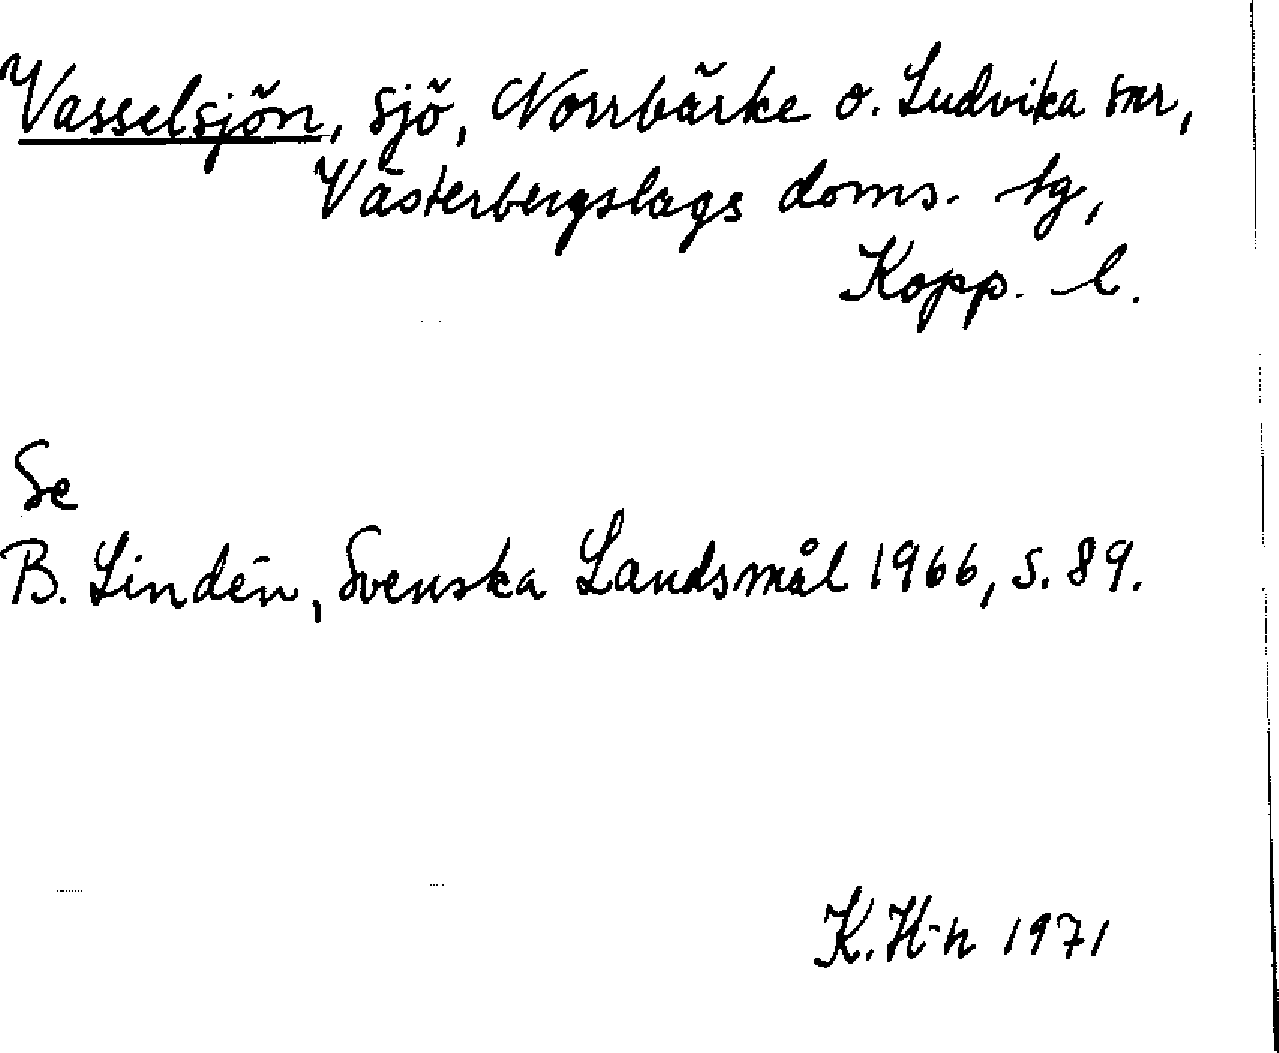 Vasselsjön, sjö, Norrbärke o. Ludvika snr,
Västerbergslags doms. tg,
Kopp. l.
Se
B. Lindén, Svenska Landsmål 1966, s. 89.
K. H-n 1971